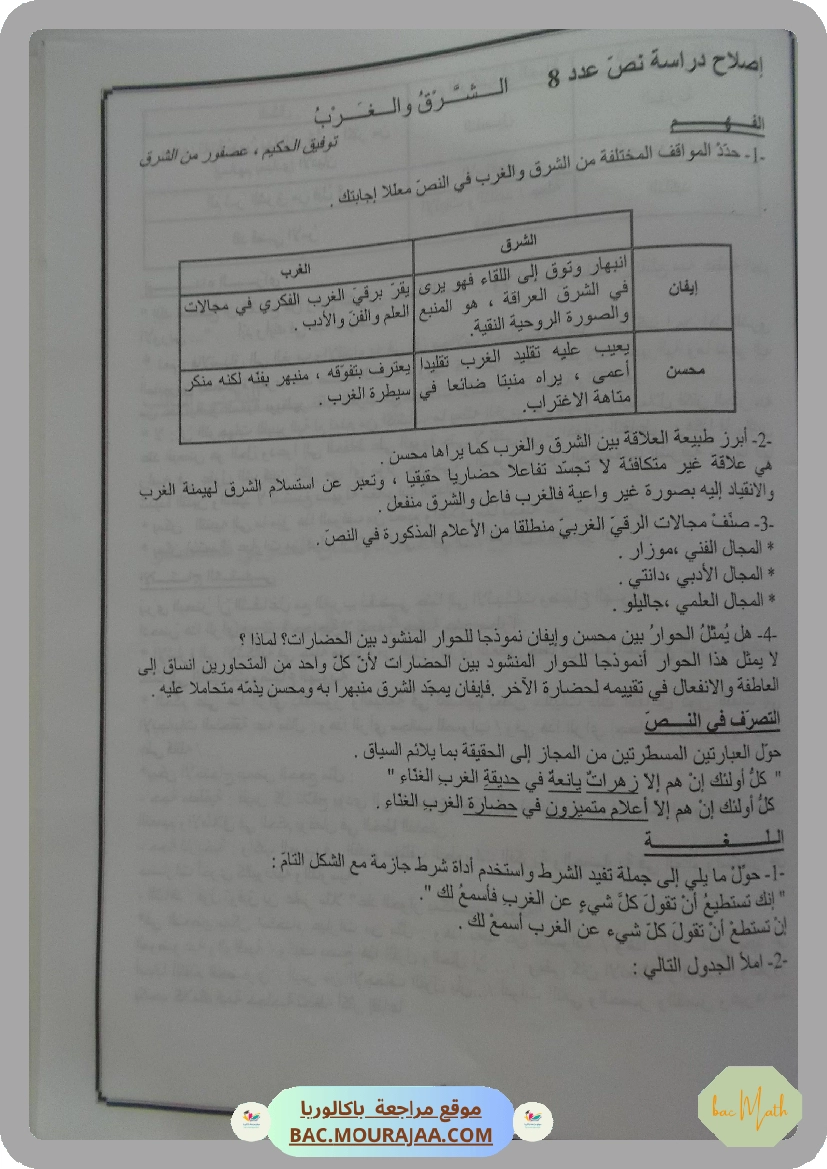 إصلاح دراسة نصّ عدد 8
الـــشَّـــرْقُ والـــغَـــرْبُ
توفيق الحكيم ، عصفور من الشرق
الفــهــــم
-1- حدّدْ المواقف المختلفة من الشرق والغرب في النصّ معللا إجابتك .
الشرق
الغرب
إيفان
انبهار وتوق إلى اللقاء فهو يرى
في الشرق العراقة ، هو المنبع
والصورة الروحية النقية.
يقرّ برقيّ الغرب الفكري في مجالات
العلم والفنّ والأدب .
محسن
يعيب عليه تقليد الغرب تقليدا
أعمى ، يراه منبتا ضائعا في
متاهة الاغتراب.
يعترف بتفوّقه ، منبهر بفنّه لكنه منكر
سيطرة الغرب .
-2- أبرز طبيعة العلاقة بين الشرق والغرب كما يراها محسن .
هي علاقة غير متكافئة لا تجسّد تفاعلا حضاريا حقيقيا ، وتعبر عن استسلام الشرق لهيمنة الغرب
والانقياد إليه بصورة غير واعية فالغرب فاعل والشرق منفعل .
-3- صنّفْ مجالات الرقيّ الغربيّ منطلقا من الأعلام المذكورة في النصّ .
* المجال الفني ،موزار .
* المجال الأدبي ،دانتي .
* المجال العلمي ،جاليلو .
-4- هل يُمثّلُ الحوارُ بين محسن وإيفان نموذجا للحوار المنشود بين الحضارات؟ لماذا ؟
لا يمثل هذا الحوار أنموذجا للحوار المنشود بين الحضارات لأنّ كلّ واحد من المتحاورين انساق إلى
العاطفة والانفعال في تقييمه لحضارة الآخر .فإيفان يمجّد الشرق منبهرا به ومحسن يذمّه متحاملا عليه .
التصرّف في النـــصّ
حوّل العبارتين المسطّرتين من المجاز إلى الحقيقة بما يلائم السياق .
" كلُّ أولئك إنْ هم إلا زهراتٌ يانعةٌ في حديقةِ الغربِ الغنّاء "
كلُّ أولئك إن هم إلا أعلام متميزون في حضارة الغربِ الغنّاء .
اللــغـــــــة
-1- حوّلْ ما يلي إلى جملة تفيد الشرط واستخدم أداة شرط جازمة مع الشكل التامّ :
" إنك تستطيعُ أنْ تقولَ كلَّ شيءٍ عن الغربِ فأسمعُ لك ".
إنْ تستطعْ أنْ تقولَ كلّ شيء عن الغرب أسمعْ لك .
-2- املأ الجدول التالي :
موقع مراجعة باكالوريا
BAC.MOURAJAA.COM
bac Math